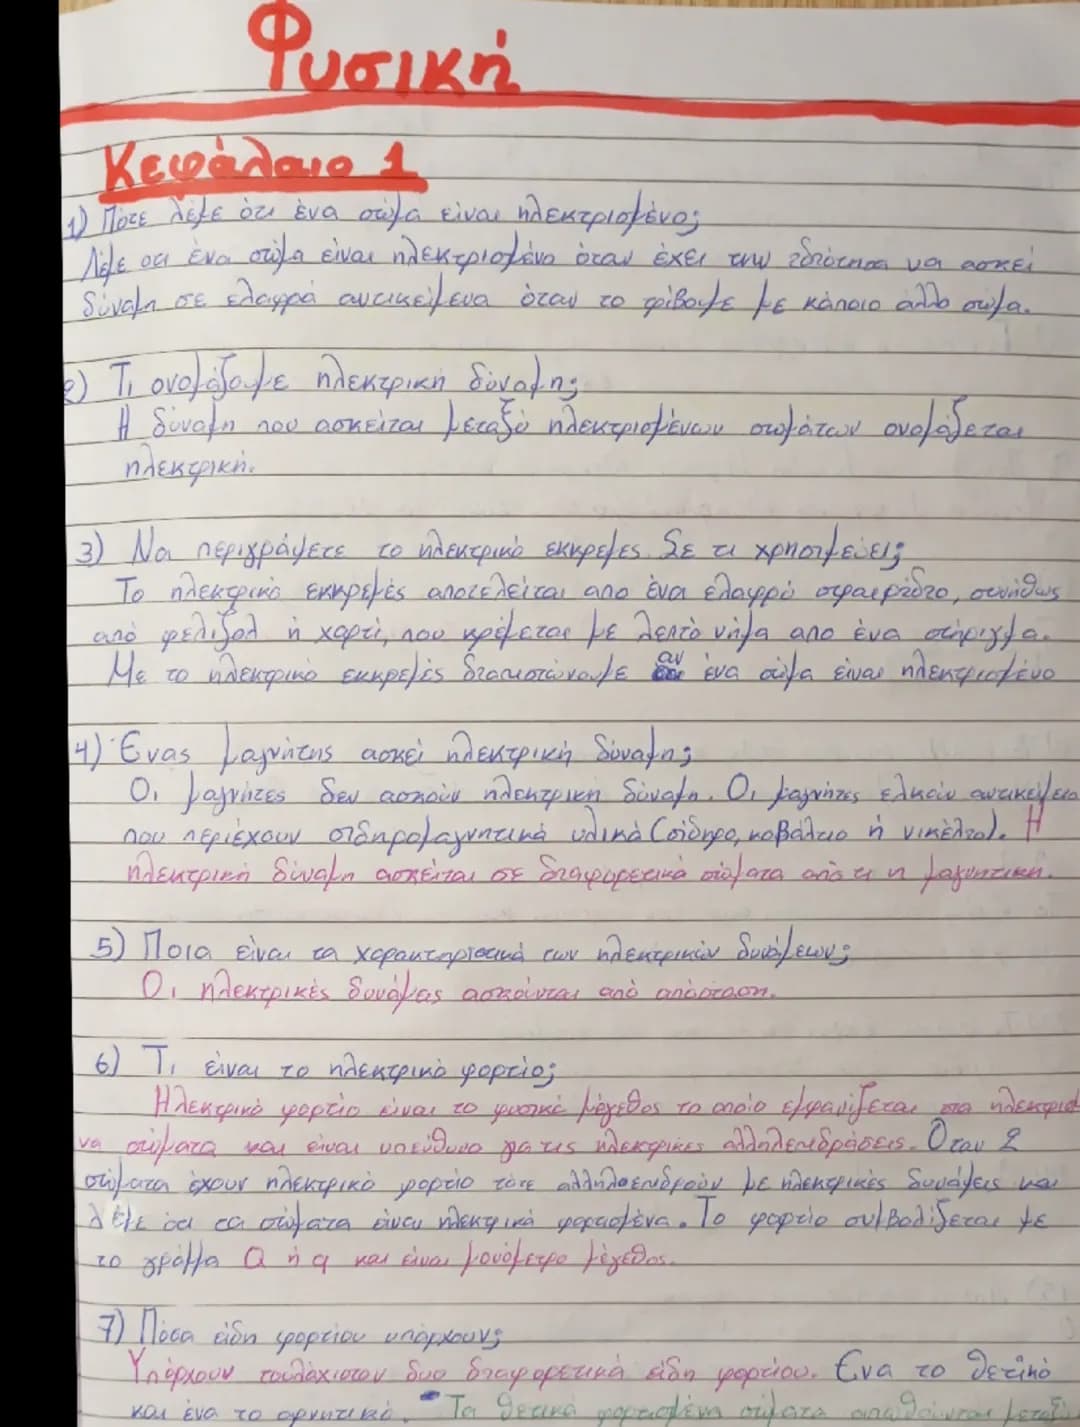 Φυσική
Κεφάλαιο 1
1) Πότε λέμε ότι ένα σώμα είναι ηλεκτρισμένο;
Λέμε οτι ένα σώμα είναι ηλεκτρισμένο όταν έχει την ιδιότητα να ασκεί
δύναμη σε ελαφρά αντικείμενα όταν το τρίβουμε με κάποιο άλλο σώμα.
2) Τι ονομάζουμε ηλεκτρική δύναμη;
Η δύναμη που ασκείται μεταξύ ηλεκτρισμένων σωμάτων ονομάζεται
ηλεκτρική.
3) Να περιγράψετε το ηλεκτρικό εκκρεμές. Σε τι χρησιμεύει;
Το ηλεκτρικό εκκρεμές αποτελείται απο ένα ελαφρύ σφαιρίδιο, συνήθως
από φελιζόλ ή χαρτί, που κρέμεται με λεπτό νήμα απο ένα στήριγμα.
Με το ηλεκτρικό εκκρεμές διαπιστώνουμε αν ένα σώμα είναι ηλεκτρισμένο
4) Ένας μαγνήτης ασκεί ηλεκτρική δύναμη;
Οι μαγνήτες δεν ασκούν ηλεκτρική δύναμη. Οι μαγνήτες έλκουν αντικείμενα
που περιέχουν σιδηρομαγνητικά υλικά (σίδηρο, κοβάλτιο ή νικέλιο). Η
ηλεκτρική δύναμη ασκείται σε διαφορετικά σώματα από τι η μαγνητική.
5) Ποια είναι τα χαρακτηριστικά των ηλεκτρικών δυνάμεων;
Οι ηλεκτρικές δυνάμεις ασκούνται από απόσταση.
6) Τι είναι το ηλεκτρικό φορτίο;
Ηλεκτρικό φορτίο είναι το φυσικό μέγεθος το οποίο εμφανίζεται στα ηλεκτρισμ
να σώματα και είναι υπεύθυνο για τις ηλεκτρικές αλληλεπιδράσεις. Οταν 2
σώματα έχουν ηλεκτρικό φορτίο τότε αλληλοεπιδρούν με ηλεκτρικές δυνάμεις και
λέμε ότι τα σώματα είναι ηλεκτρικά φορτισμένα. Το φορτίο συμβολίζεται με
το γράμμα Q ή q και είναι μονόμετρο μέγεθος.
7) Πόσα είδη φορτίου υπάρχουν;
Υπάρχουν τουλάχιστον δυο διαφορετικά είδη φορτίου. Ενα το θετικό
και ένα το αρνητικό. Τα θετικά φορτισμένα σώματα απωθούνται μεταξύ